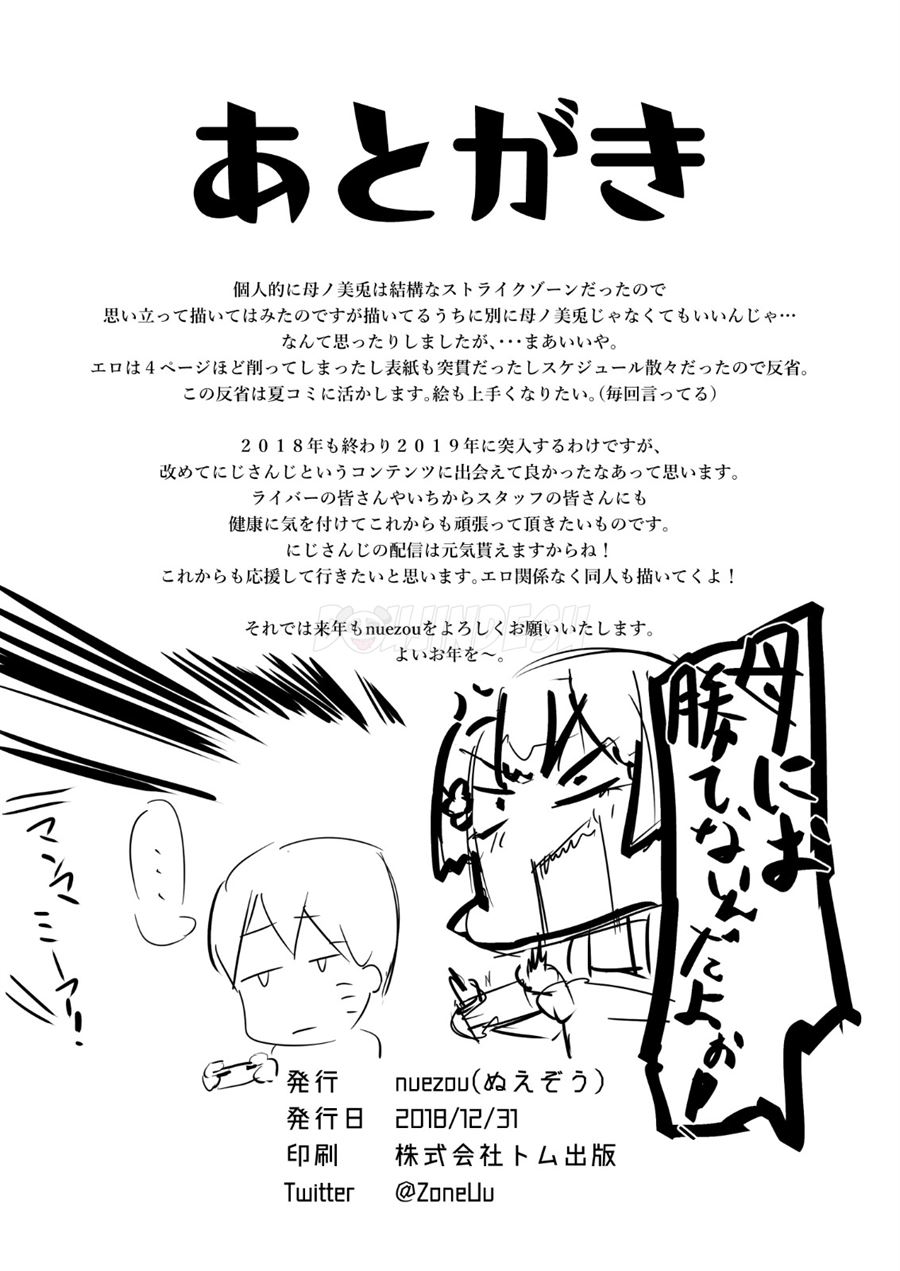 あとがき
個人的に母ノ美兎は結構なストライクゾーンだったので
思い立って描いてはみたのですが描いてるうちに別に母ノ美兎じゃなくてもいいんじゃ…
なんて思ったりしましたが、・・・まあいいや。
エロは４ページほど削ってしまったし表紙も突貫だったしスケジュール散々だったので反省。
この反省は夏コミに活かします。絵も上手くなりたい。（毎回言ってる）
２０１８年も終わり２０１９年に突入するわけですが、
改めてにじさんじというコンテンツに出会えて良かったなあって思います。
ライバーの皆さんやいちからスタッフの皆さんにも
健康に気を付けてこれからも頑張って頂きたいものです。
にじさんじの配信は元気貰えますからね！
これからも応援して行きたいと思います。エロ関係なく同人も描いてくよ！
それでは来年もnuezouをよろしくお願いいたします。
よいお年を～。
母には
勝てないんだよぉ！
・・・・
発行 nuezou(ぬえぞう)
発行日 2018/12/31
印刷 株式会社トム出版
Twitter @ZoneUu